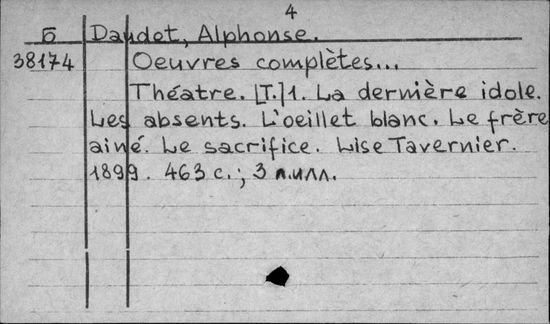 4
Б Daudet, Alphonse.
38174 Oeuvres complètes...
Théatre. [T.] 1. La dernière idole.
Les absents. L'oeillet blanc. Le frère
ainé. Le sacrifice. Lise Tavernier.
1899. 463 с.; 3 л.илл.